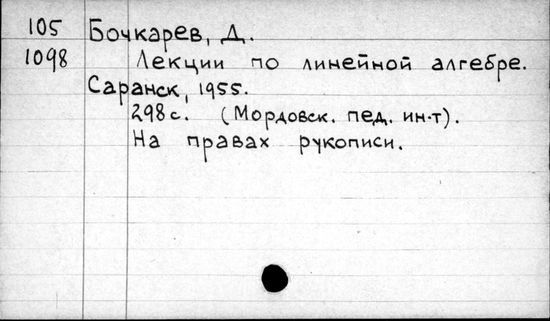 105 Бочкарев, Д.
1098 Лекции по линейной алгебре.
Саранск, 1955.
298 с. (Мордовск. пед. ин-т).
На правах рукописи.